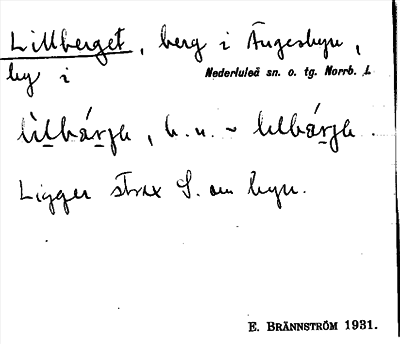 Lillberget, berg i Ängesbyn,
by i Nederluleå sn. o. tg. Norrb. L
lìlbárja, b. u. ~ lılbárja.
Ligger strax S. om byn.
E. BRÄNNSTRÖM 1931.